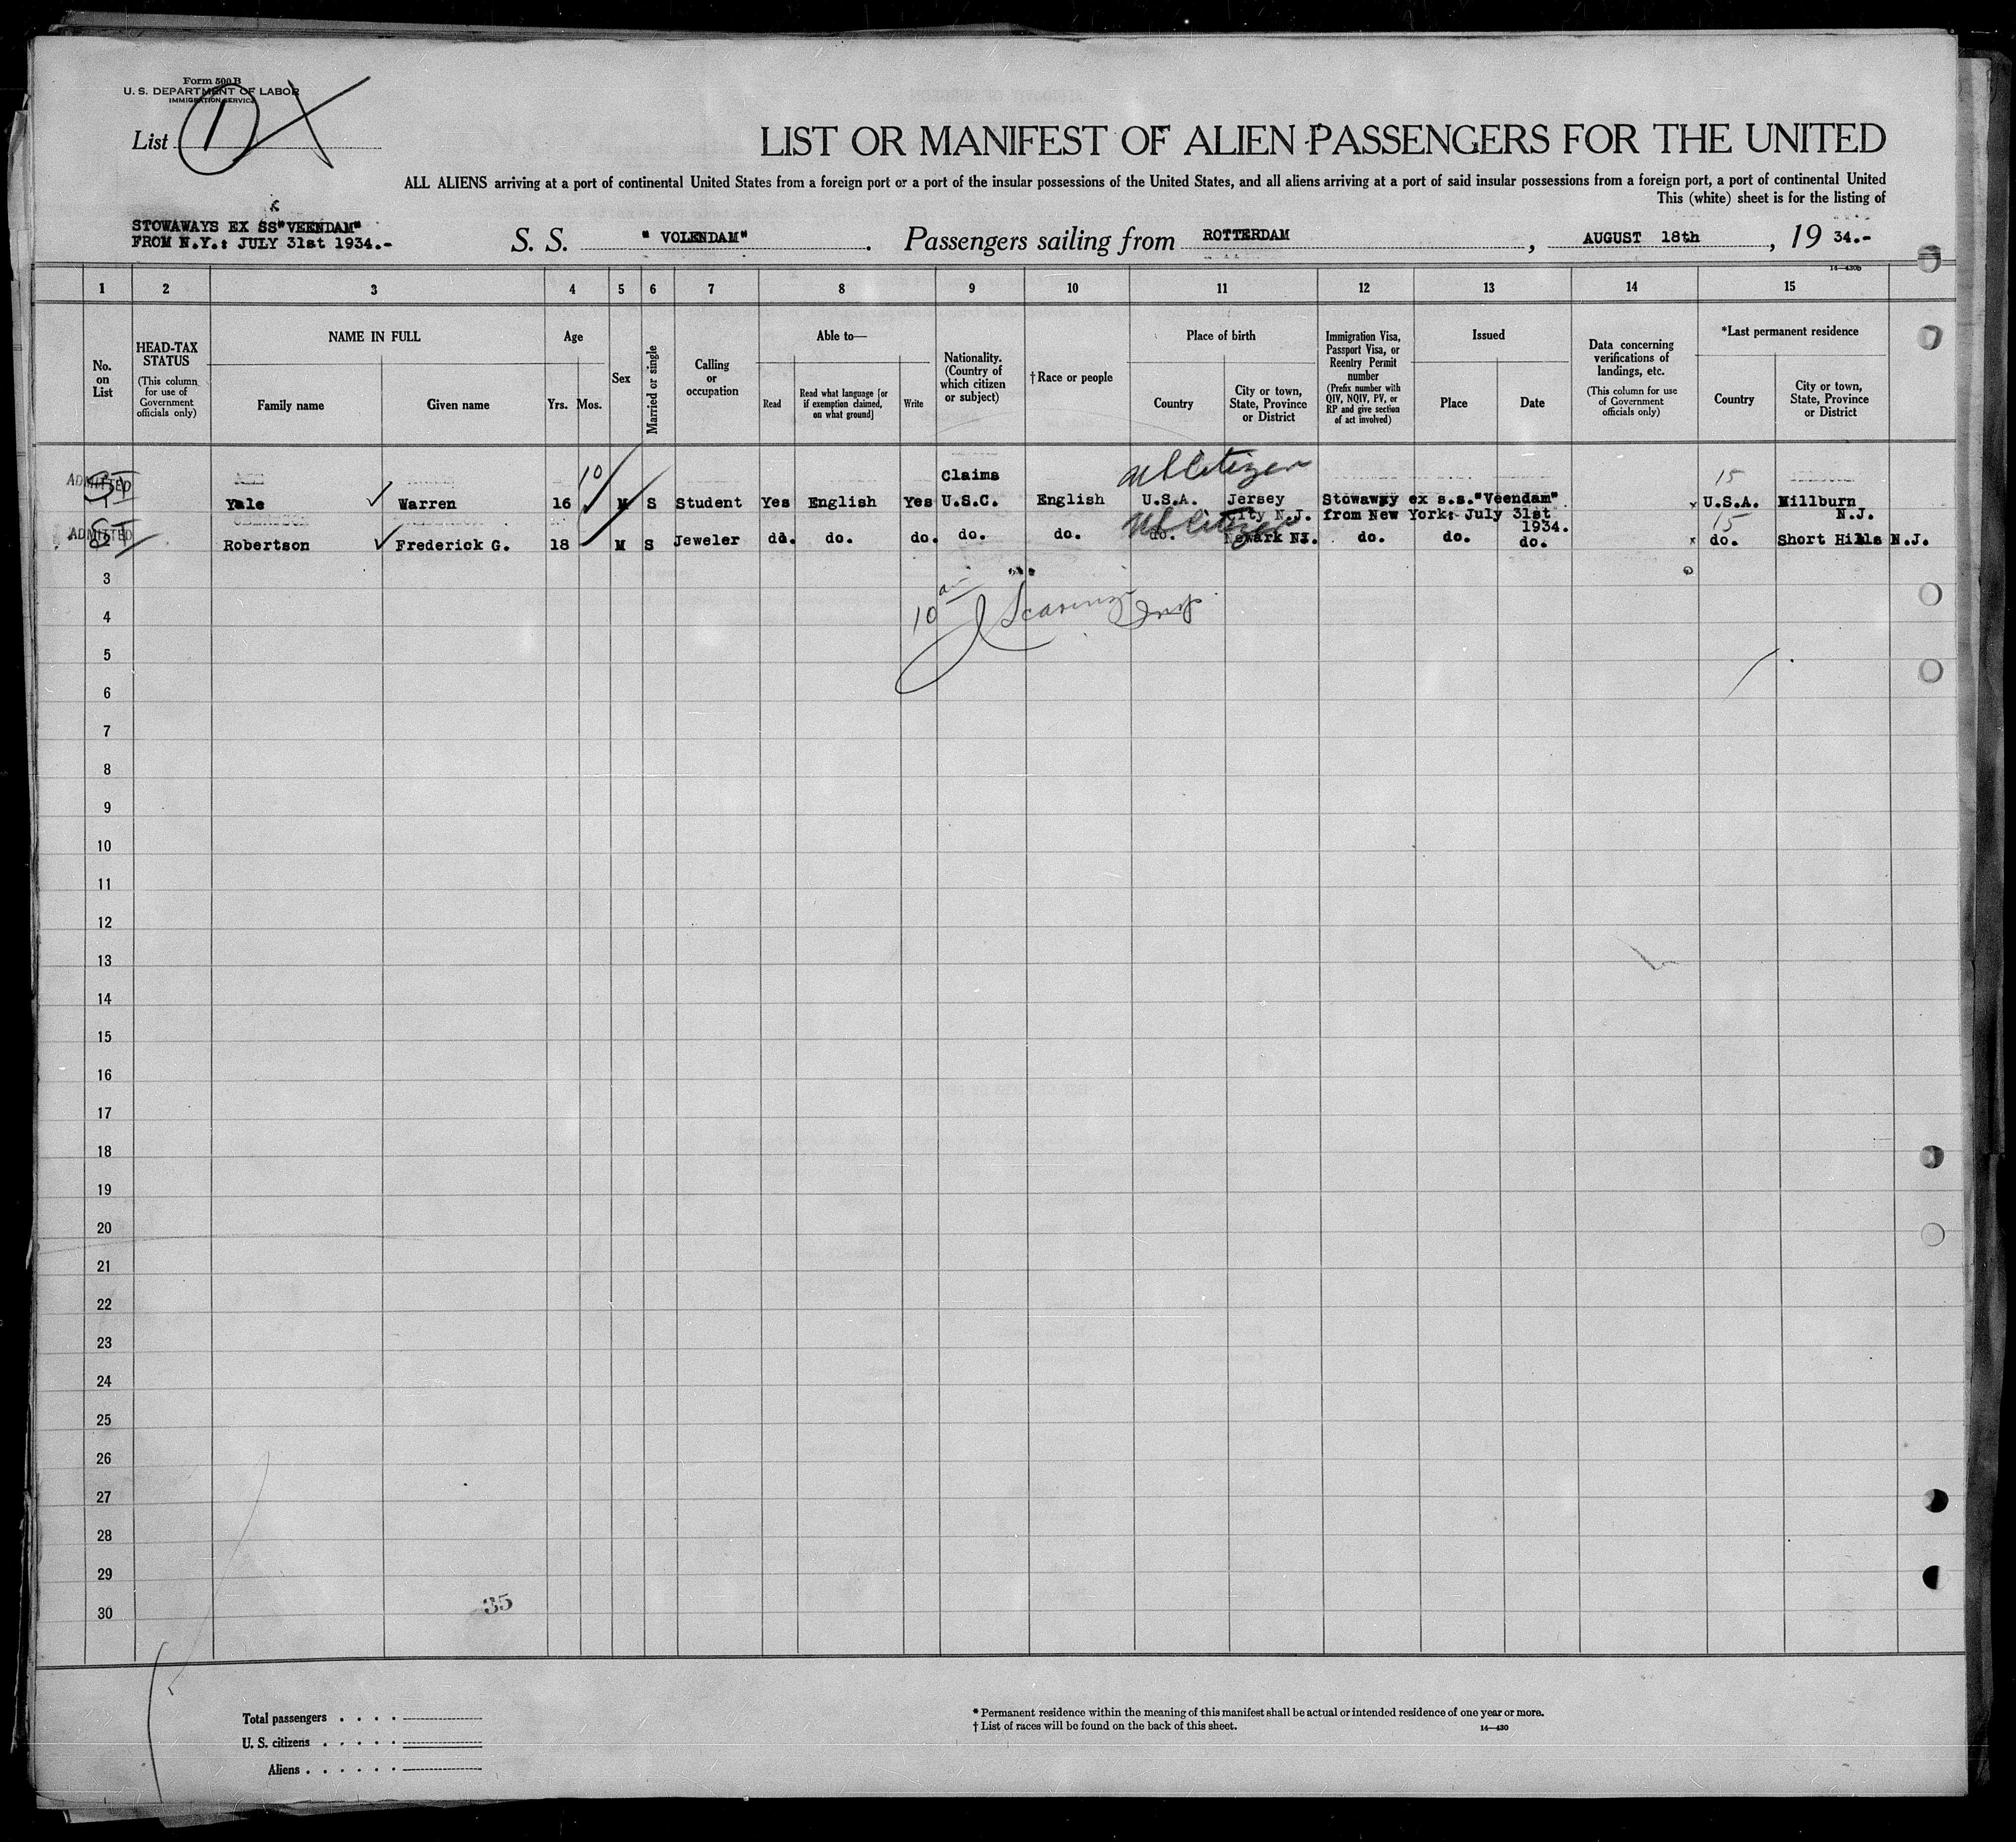 Form 500 B
U. S. DEPARTMENT OF LABOR
IMMIGRATION SERVICE
List 1
LIST OR MANIFEST OF ALIEN PASSENGERS FOR THE UNITED
ALL ALIENS arriving at a port of continental United States from a foreign port or a port of the insular possessions of the United States, and all aliens arriving at a port of said insular possessions from a foreign port, a port of continental United
This (white) sheet is for the listing of
STOWAWAYS EX SS"VEENDAM"
FROM N.Y.: JULY 31st 1934.-
S. S. " VOLENDAM" . Passengers sailing from ROTTERDAM , AUGUST 18th , 19 34.-
14—430b
1 2 3 4 5 6 7 8 9 10 11 12 13 14 15
No. on List
HEAD-TAX STATUS (This column for use of Government officials only)
NAME IN FULL
Family name Given name
Age
Yrs. Mos.
Sex
Married or single
Calling or occupation
Able to—
Read Read what language [or if exemption claimed, on what ground] Write
Nationality. (Country of which citizen or subject)
† Race or people
Place of birth
Country City or town, State, Province or District
Immigration Visa, Passport Visa, or Reentry Permit number (Prefix number with QIV, NQIV, PV, or RP and give section of act involved)
Issued
Place Date
Data concerning verifications of landings, etc. (This column for use of Government officials only)
*Last permanent residence
Country City or town, State, Province or District
ADMITTED SI 10 Claims US Citizen 15
1 Yale Warren 16 M S Student Yes English Yes U.S.C. English U.S.A. Jersey City N.J. Stowaway ex s.s."Veendam" from New York: July 31st 1934. x U.S.A. Millburn N.J.
ADMITTED SI US Citizen 15
2 Robertson Frederick G. 18 M S Jeweler do. do. do. do. do. do. Newark NJ. do. do. do. x do. Short Hills N.J.
3
4 10 am Insp
5
6
7
8
9
10
11
12
13
14
15
16
17
18
19
20
21
22
23
24
25
26
27
28
29
30
35
Total passengers . . . .
U. S. citizens . . . . .
Aliens . . . . . .
* Permanent residence within the meaning of this manifest shall be actual or intended residence of one year or more.
† List of races will be found on the back of this sheet.
14—430